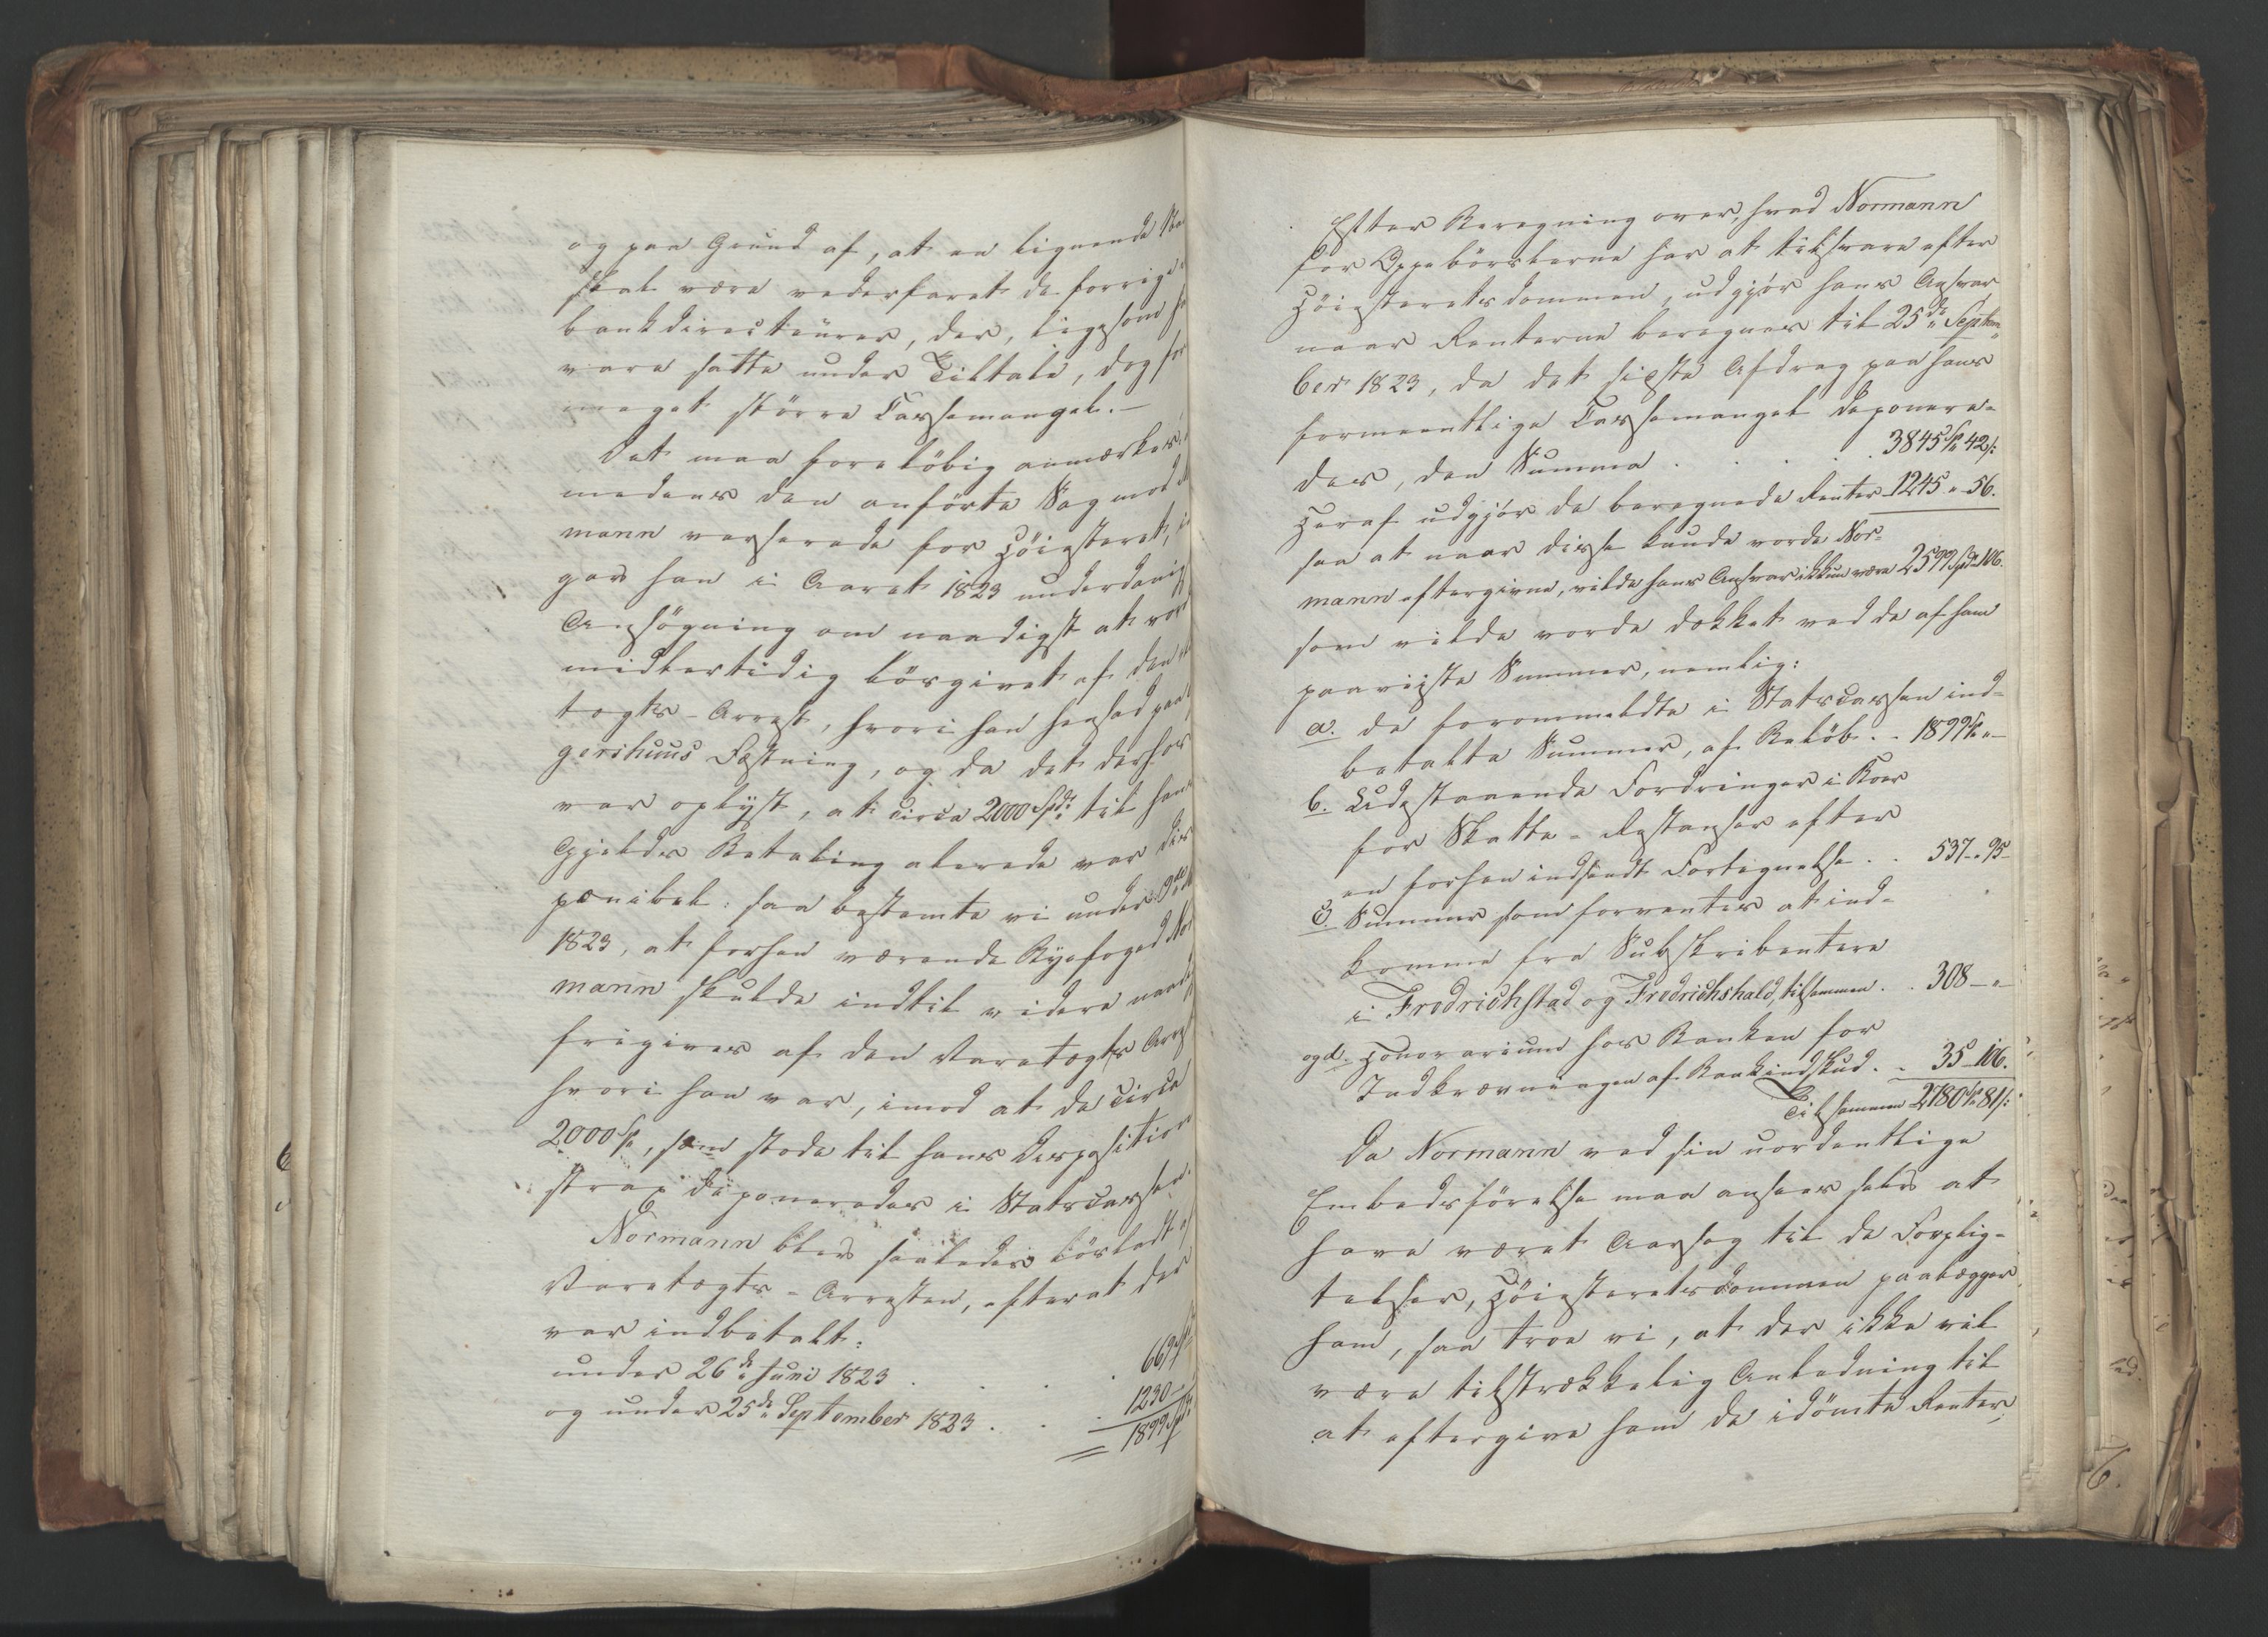 og paa Grund af, at en lignende
skal være vederfaret de forrige
bankdirecteurer, der, ligesom
vare satte under Tiltale, dog for
meget större Cassemangel. —
Det maa foreløbig anmærkes,
medens den anförte Sag mod
mann verserede for Höiesteret,
gav han i Aaret 1823 underdanig
Ansögning om naadigst at vor
midlertidig lösgivet af den
tægts-Arrest, hvori han hensad paa
gershuus Fæstning, og da det derhos
var oplyst, at circa 2000 Spd. til hans
Gjelds Betaling allerede var dis
ponibel: saa bestemte vi under 9de
1823, at forhen værende Byefoged Nor
mann skulde indtil videre naad
frigives af den Varetægts Arrest
hvori han var, imod at de circa
2000 Sp, som stode til hans Disposition
strax deponeredes i Statscassen.
Normann blev saaledes lösladt af
Varetægts-Arresten, efterat der
var indbetalt:
under 26de Juni 1823 . . . 669
og under 25de September 1823 . . . 1230
1899 Spd
Efter Beregning over, hvad Normann
for Oppebörslerne har at tilsvare efter
Höiesteretsdommen, udgjör hans Ansvar
naar Renterne beregnes til 25de Septem-
ber 1823, da det sidste Afdrag paa hans
formeentlige Cassemangel deponere-
des, den Summa . . . . . 3845 Sp 42 s:
Heraf udgjör de beregnede Renter 1245 " 56.
saa at naar disse kunde vorde Nor-
mann eftergivne, vilde hans Ansvar ikkun være 2599 Spd 106.
som vilde vorde dækket ved de af ham
paaviiste Summer, nemlig:
a. de forommeldte i Statscassen ind-
betalte Summer, af Belöb . . 1899 Sp " —
b. Udestaaende Fordringer i Moss
for Skatte-Restanser efter
en forhen indsendt Fortegnelse . . 537 - 95 -
c. Summer som forventes at ind-
komme fra Subskribentere
i Fredrichstad og Fredrichshald, tilsammen . . 308 — " —
og d. Honorarium hos Banken for
Indkrævningen af Bankindskud . . 35 - 106.
Tilsammen 2780 Sp 81 s:
Da Normann ved sin uordentlige
Embedsförelse maa ansees selv at
have været Aarsag til de Forplig-
telser, Höiesteretsdommen paalægger
ham, saa troe vi, at der ikke vil
være tilstrækkelig Anledning til
at eftergive ham de idömte Renter,